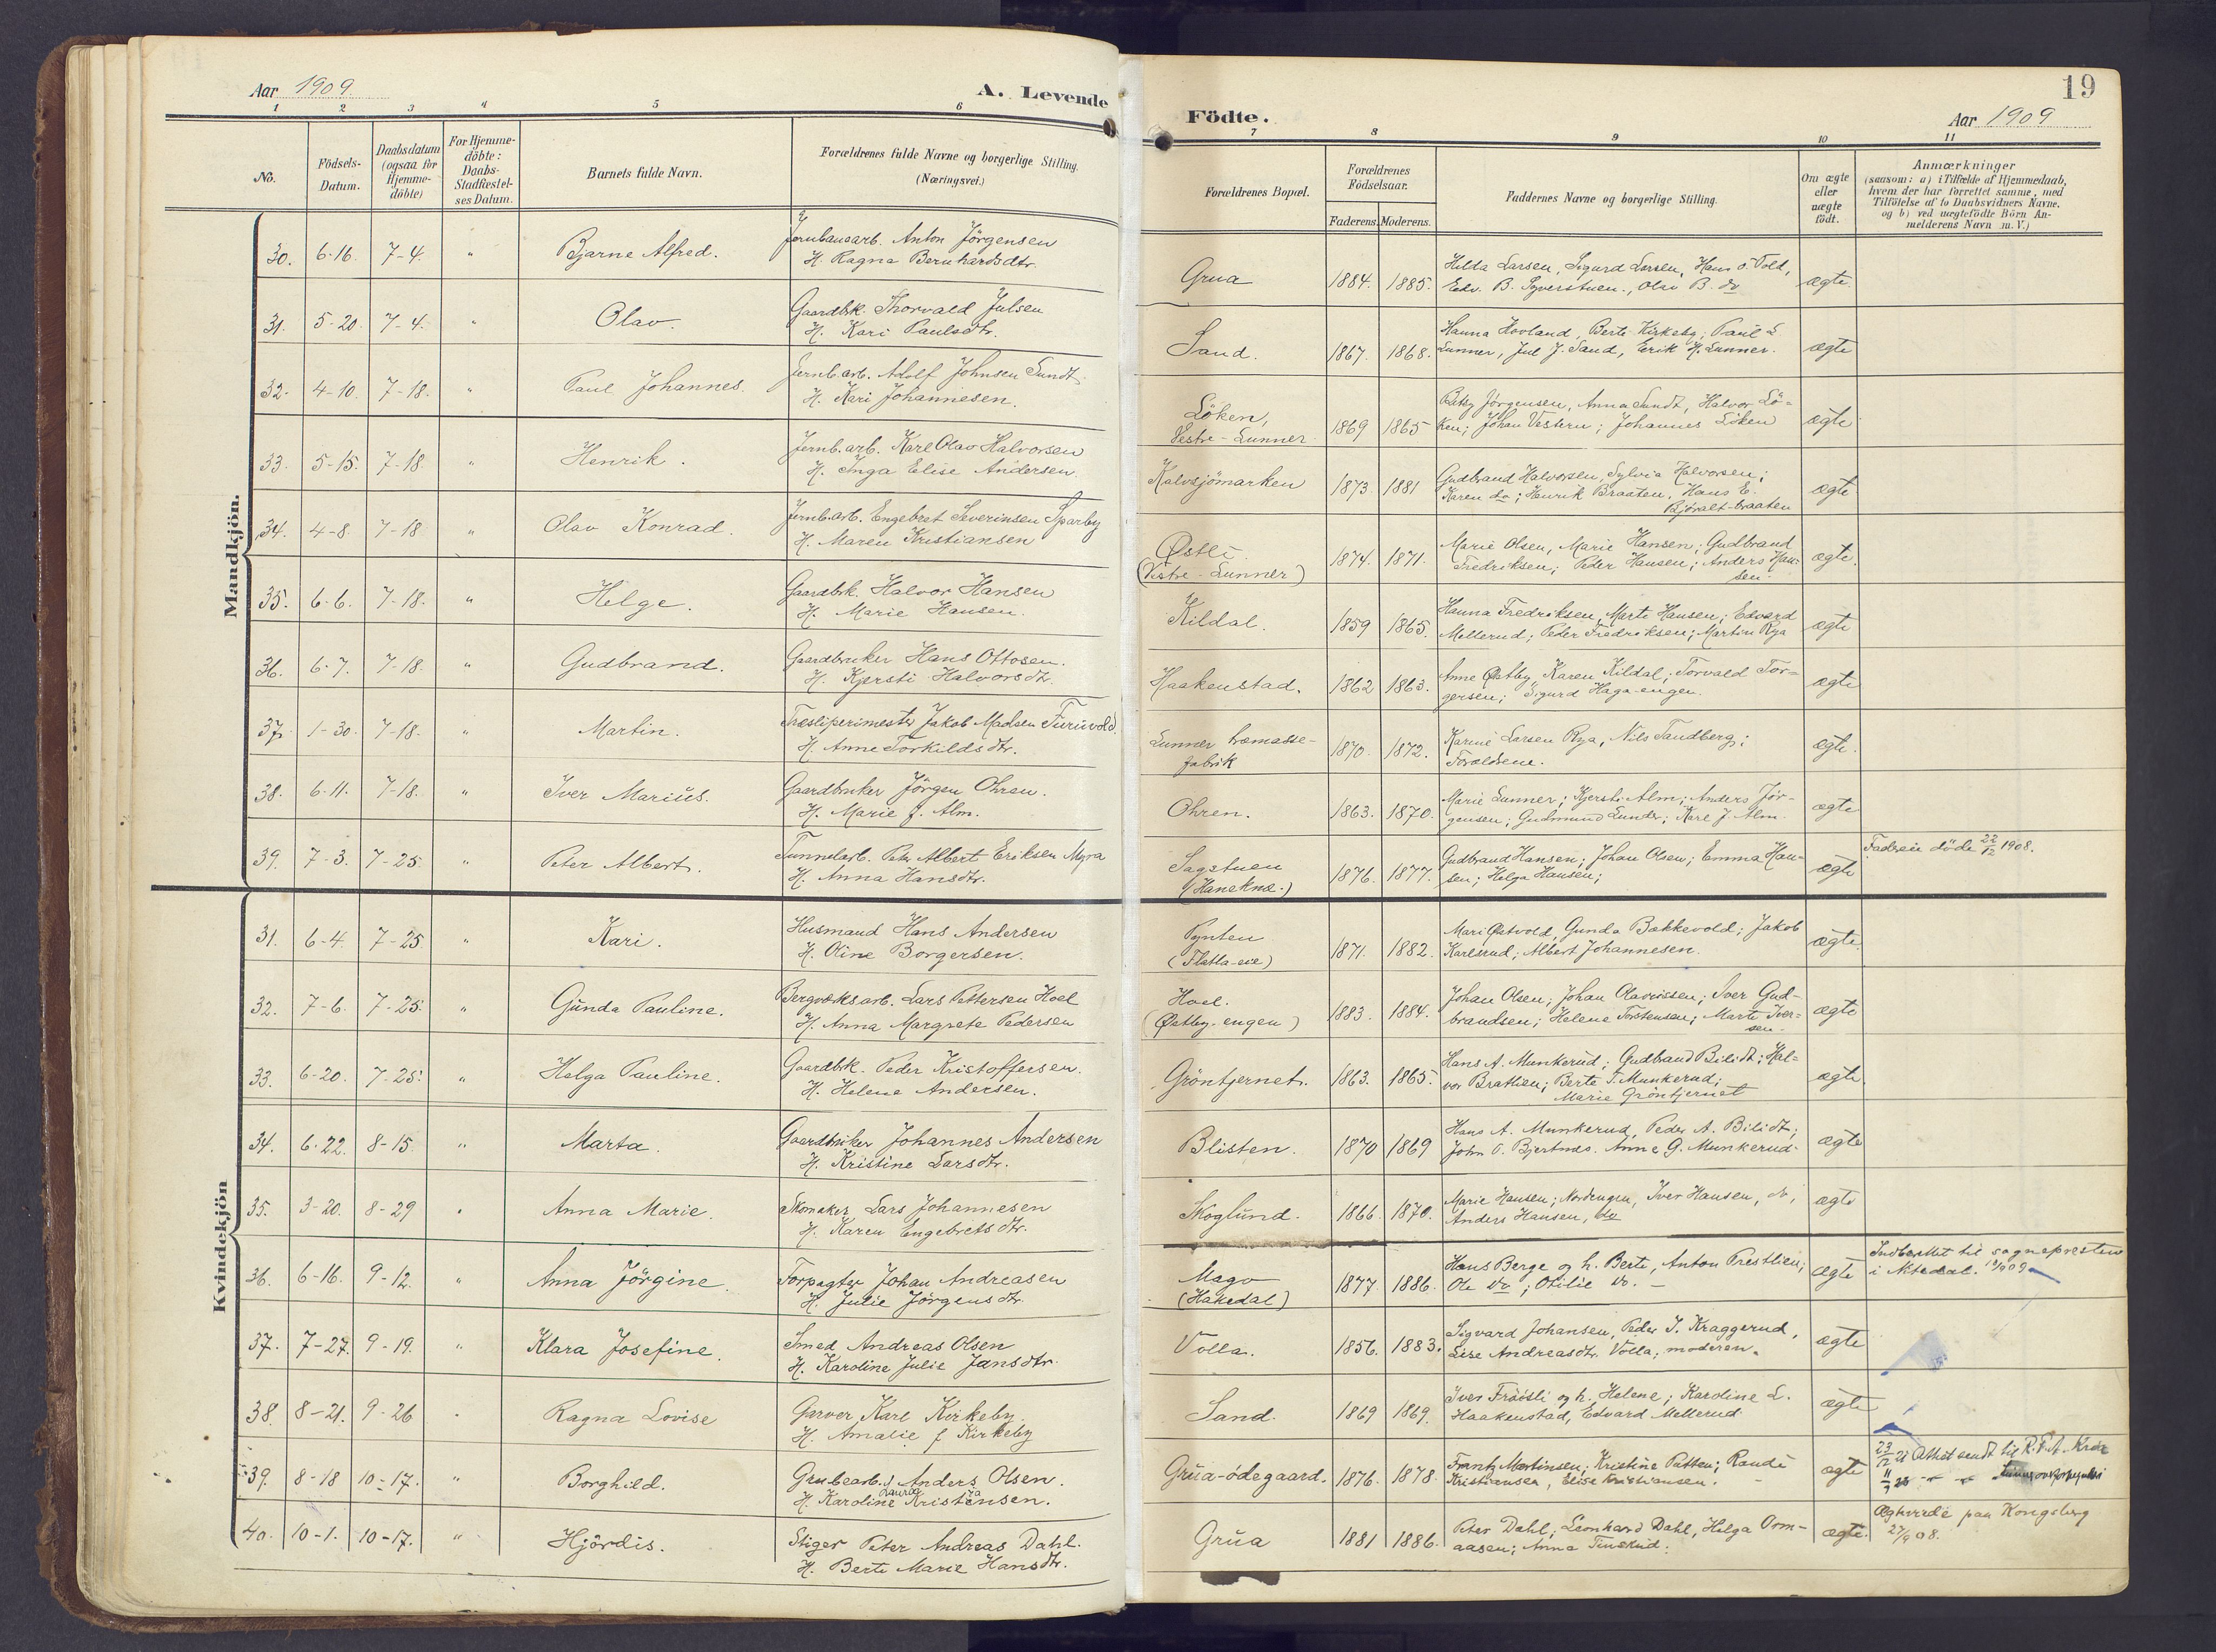 Aar 1909.
A. Levende
1 2 3 4 5 6
No.
Födsels-
Datum.
Daabsdatum
(ogsaa for
Hjemme-
döbte)
For Hjemme-
döbte:
Daabs-
Stadfæstel-
ses Datum.
Barnets fulde Navn.
Forældrenes fulde Navne og borgerlige Stilling.
(Næringsvei.)
Mandkjön.
30. 6-16. 7-4. " Bjarne Alfred. Jernbanearb. Anton Jörgensen
H. Ragna Bernhardsdtr.
31. 5-20. 7-4. " Olav. Gaardbk. Thorvald Julsen
H. Kari Paulsdtr.
32. 4-10. 7-18. " Paul Johannes. Jernb.arb. Adolf Johnsen Sundt.
H. Kari Johannesen.
33. 5-15. 7-18. " Henrik. Jernb.arb. Karl Olav Halvorsen
H. Inga Elise Andersen
34. 4-8. 7-18. " Olav Konrad. Jernb.arb. Engebret Severinsen Sparby
H. Maren Kristiansen
35. 6-6. 7-18. " Helge. Gaardbrk. Halvor Hansen
H. Marie Hansen.
36. 6-7. 7-18. " Gudbrand. Gaardbruker Hans Ottosen.
H. Kjersti Halvorsdtr.
37. 1-30. 7-18. " Martin. Træsliperimester Jakob Madsen Furuvold
H. Anne Torkildsdtr.
38. 6-11. 7-18. " Iver Marius. Gaardbruker Jörgen Ohren.
H. Marie f. Alm.
39. 7-3. 7-25 " Peter Albert. Tunnelarb. Peter Albert Eriksen Myra
H. Anna Hansdtr.
Kvindekjön
31. 6-4. 7-25. " Kari. Husmand Hans Andersen
H. Oline Borgersen.
32. 7-6. 7-25. " Gunda Pauline. Bergverksarb. Lars Pettersen Hoel
H. Anna Margrete Pedersen
33. 6-20. 7-25. " Helga Pauline. Gaardbrk. Peder Kristoffersen.
H. Helene Andersen.
34. 6-22. 8-15. " Marta. Gaardbruker Johannes Andersen
H. Kristine Larsdtr.
35. 3-20. 8-29 " Anna Marie. Skomaker Lars Johannesen
H. Karen Engebretsdtr.
36. 6-16. 9-12. " Anna Jörgine. Forpagter Johan Andreasen
H. Julie Jörgensdtr.
37. 7-27. 9-19. " Klara Josefine. Smed Andreas Olsen
H. Karoline Julie Jansdtr.
38. 8-21. 9-26 " Ragna Lovise Garver Karl Kirkeby.
H. Amalie f Kirkeby
39. 8-18 10-17. " Borghild. Grubearb. Anders Olsen.
H. Karoline Laura Kristensen.
40. 10-1. 10-17. " Hjördis. Stiger Peter Andreas Dahl.
H. Berte Marie Hansdtr.
19
Födte.
Aar 1909
7 8 9 10 11
Forældrenes Bopæl.
Forældrenes
Födselsaar.
Faderens. Moderens.
Faddernes Navne og borgerlige Stilling.
Om ægte
eller
uægte
født.
Anmærkninger
(saasom: a) i Tilfælde af Hjemmedaab,
hvem der har forrettet samme, med
Tilföielse af to Daabsvidners Navne.
og b) ved uægtefödte Börn An-
melderens Navn m. V.)
Grua 1884. 1885. Hilda Larsen, Sigurd Larsen, Hans O. Told,
Edv. B. Syverstuen, Olav B. do ægte.
Sand. 1867. 1868. Hanna Hovland, Berte Kirkeby; Paul L
Lunner, Jul J. Sand, Erik H. Lunner. ægte
Löken,
Vestre-Lunner 1869 1865 Betsy Jörgensen, Anna Sundt, Halvor Lö-
ken; Johan Vestern; Johannes Löken ægte
Kalvsjömarken 1873. 1881 Gudbrand Halvorsen, Sylvia Halvorsen;
Karen do; Henrik Braaten, Hans E.
Björalt-braaten ægte
Østli
(Vestre-Lunner) 1874. 1871. Marie Olsen, Marie Hansen; Gudbrand
Fredriksen; Peder Hansen; Anders Han-
sen. ægte.
Kildal. 1859 1865. Hanna Fredriksen, Marte Hansen; Edvard
Mellerud; Peder Fredriksen; Martin Rya ægte
Haakenstad. 1862 1863. Anne Østby, Karen Kildal, Torvald Tor-
gersen; Sigurd Haga-engen. ægte
Lunner træmasse-
fabrik 1870. 1872. Karine Larsen Rya, Nils Sandberg;
Forældrene. ægte.
Ohren. 1863. 1870. Marie Lunner; Kjersti Alm; Anders Jör-
gensen; Gudmund Lunder; Karl J. Alm. ægte
Sagstuen
(Hanekne.) 1876. 1877. Gudbrand Hansen; Johan Olsen; Emma Han-
sen; Helga Hansen; ægte Faderen döde 22/12 1908.
Pynten
(Flatla-eie) 1871. 1882. Mari Østvold, Gunda Bakkevold; Jakob
Karlsrud; Albert Johannesen. ægte.
Hoel.
(Østby-engen) 1883. 1884. Johan Olsen; Johan Olavessen; Iver Gud-
brandsen; Helene Torstensen; Marte Iver-
sen. ægte
Gröntjernet. 1863. 1865. Hans A. Munkerud; Gudbrand Bilidt; Hal-
vor Bratlien; Berte T. Munkerud;
Marie Gröntjernet ægte.
Blisten. 1870 1869 Hans A. Munkerud, Peder A. Bilidt;
John O. Bjertnes. Anne G. Munkerud. ægte
Skoglund. 1866. 1870. Marie Hansen; Nordengen, Iver Hansen, do,
Anders Hansen, do ægte
Mago
(Hakedal) 1877. 1886. Hans Berge og h. Berte, Anton Prestlien;
Ole do; Otilie do. - ægte Indberettet til sognepresten
i Nitedal. 12/9 09
Volla. 1856. 1883. Sigvard Johansen, Peder I. Kraggerud,
Lise Andreasdtr. Volla, moderen. ægte
Sand. 1869 1869. Iver Fröisli og h. Helene; Karoline L.
Haakenstad, Edvard Mellerud. ægte
Grua-ödegaard. 1876. 1878. Frantz Martinsen; Kristine Patten; Randi
Kristiansen, Elise Kristiansen. ægte
Grua 1881 1886. Peter Dahl; Leonhard Dahl, Helga Oom-
aasen; Anna Tinskud. ægte. Ægteviede paa Kongsberg
27/9 08.